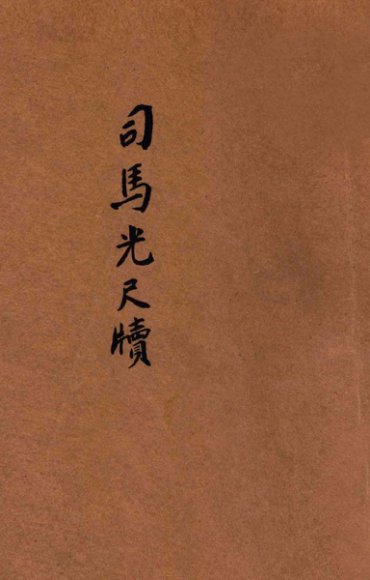 司馬光尺牘